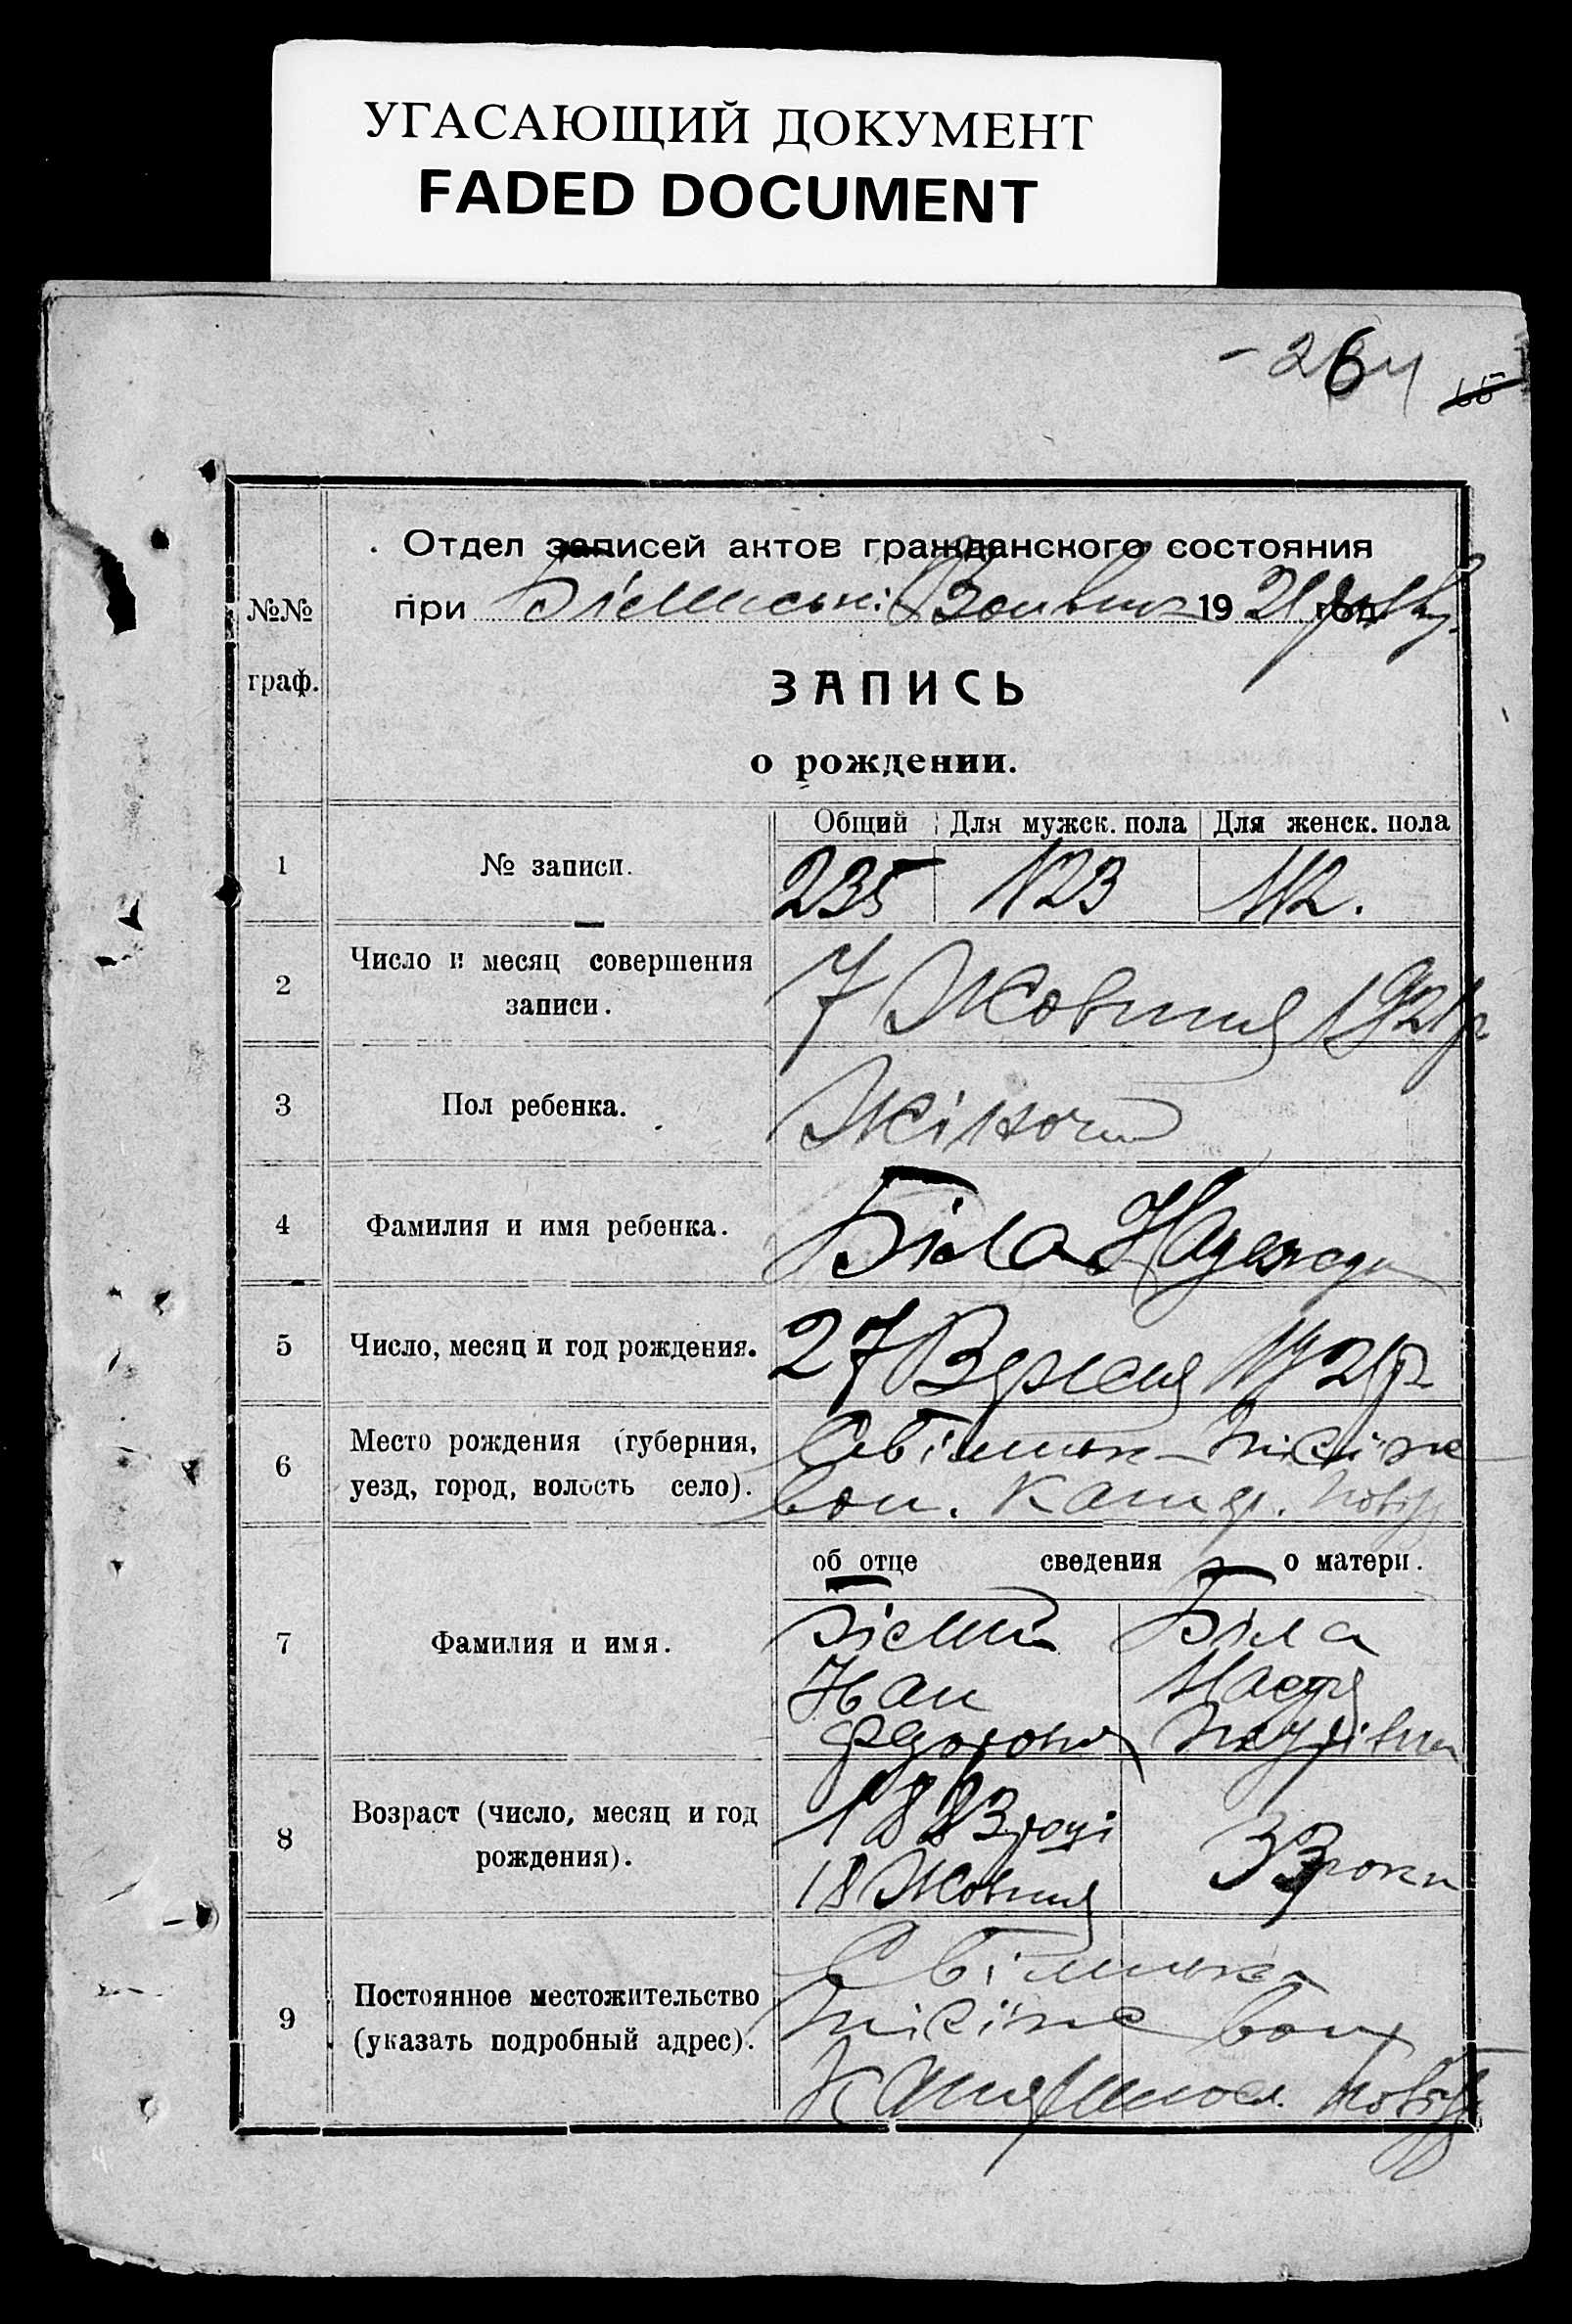 УГАСАЮЩИЙ ДОКУМЕНТ
FADED DOCUMENT
- 264 65
Отдел записей актов гражданского состояния
№№ при 1921 год
граф. ЗАПИСЬ
о рождении.
Общий Для мужск. пола Для женск. пола
1 № записи. 235 123 112.
2 Число и месяц совершения
записи. 7 Жовтня 1921 р
3 Пол ребенка. Жіночий
4 Фамилия и имя ребенка. Біла Надежда
5 Число, месяц и год рождения. 27 Вересня 1921 р
6 Место рождения (губерния,
уезд, город, волость село).
вол. повіт
об отце сведения о матери.
7 Фамилия и имя. Білий Біла
Іван
Федорович
8 Возраст (число, месяц и год
рождения). 1883 році 33 роки
18 Жовтня
9 Постоянное местожительство
(указать подробный адрес). вол
повіт